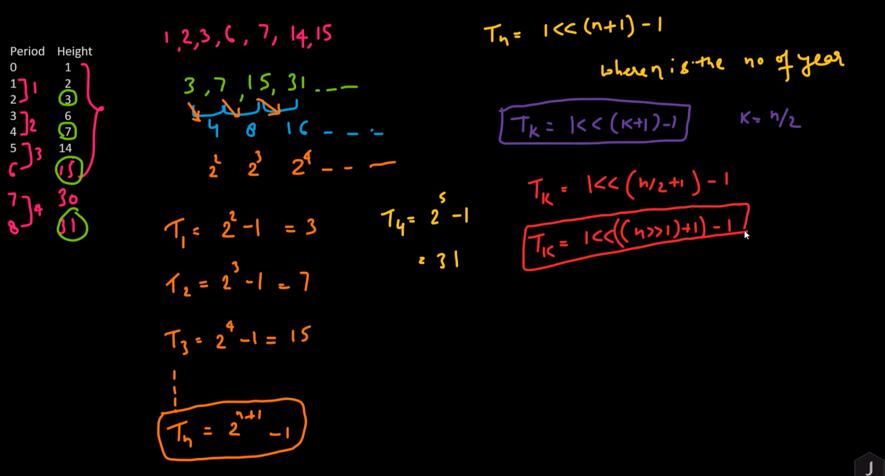 Period Height
0 1
1 2
2 3
3 6
4 7
5 14
6 15
7 30
8 31
]1
]2
]3
]4
1,2,3,6,7,14,15
3,7,15,31---
4 8 16 ---
2² 2³ 2⁴ ---
T₁ = 2² -1 = 3
T₂ = 2³ -1 = 7
T₃ = 2⁴ -1 = 15
Tₙ = 2ⁿ⁺¹ -1
T₄ = 2⁵ -1
= 31
Tₙ = 1<<(n+1)-1
where n is the no of year
Tₖ = 1<<(k+1)-1
K = n/2
Tₖ = 1<<(n/2+1)-1
Tₖ = 1<<((n>>1)+1)-1
J